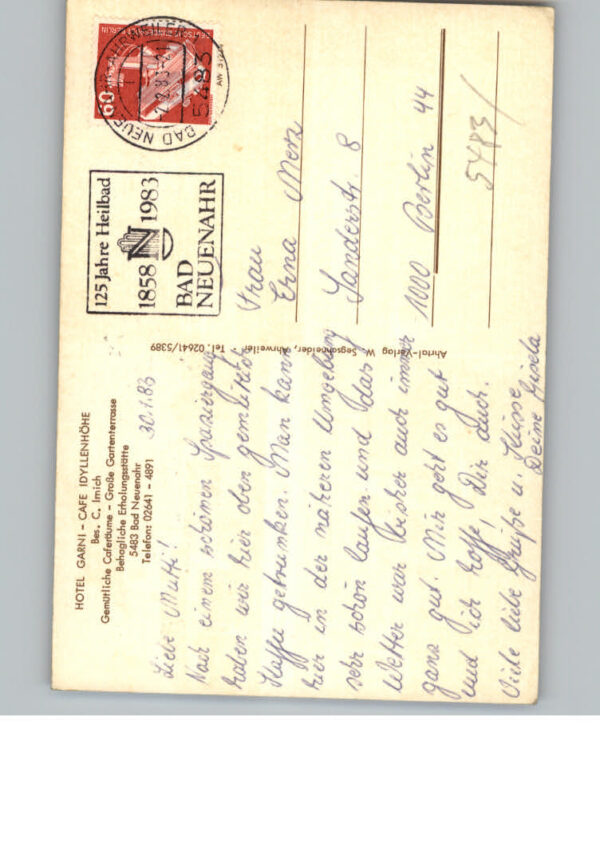 HOTEL GARNI - CAFE IDYLLENHÖHE
Bes. C. Imich
Gemütliche Caferäume - Große Gartenterrasse
Behagliche Erholungsstätte
5483 Bad Neuenahr
Telefon: 02641 - 4891
30.1.83
Liebe Mutti!
Nach einem schönen Spaziergang
haben wir hier oben gemütlich
Kaffee getrunken. Man kann
hier in der näheren Umgebung
sehr schön laufen und das
Wetter war bisher auch immer
ganz gut. Mir geht es gut
und ich hoffe, Dir auch.
Viele liebe Grüße u. Küsse
Deine Gisela
Ahrtal-Verlag W. Segschneider, Ahrweiler Tel. 02641/5389
125 Jahre Heilbad
1858 N 1983
BAD
NEUENAHR
60
DEUTSCHE BUNDESPOST BERLIN
BAD NEUENAHR-AHRWEILER 1
5483
Frau
Erna Merz
Sanderstr. 8
1000 Berlin 44
5483/